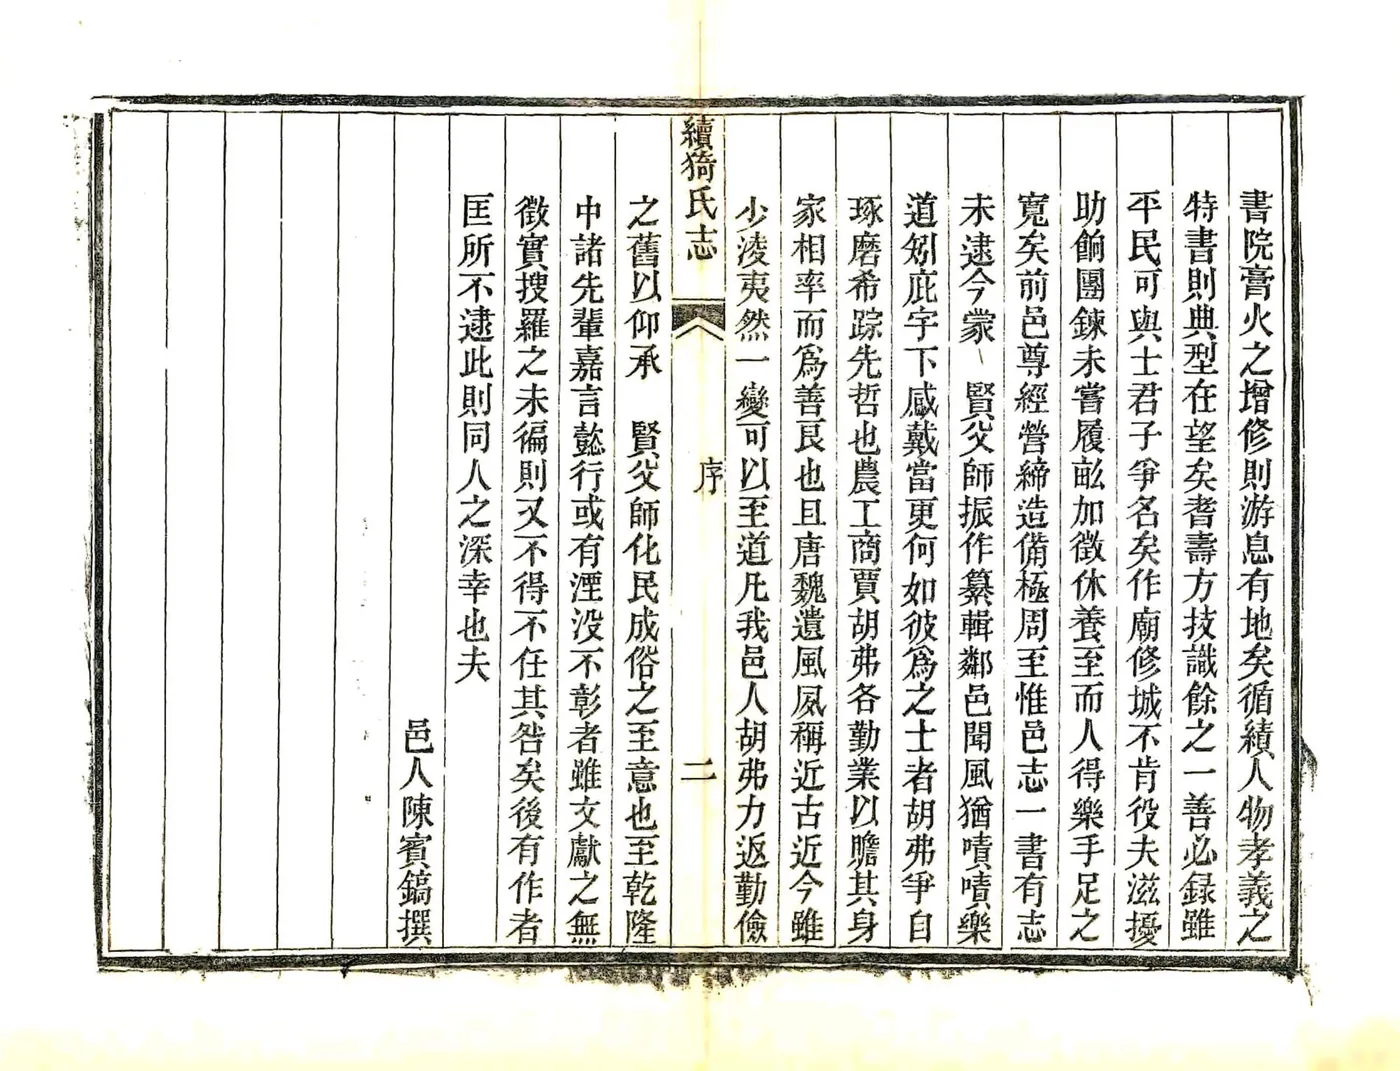 書院膏火之增修則游息有地矣循績人物孝義之
特書則典型在望矣耆壽方技識餘之一善必録雖
平民可與士君子爭名矣作廟修城不肯役夫滋擾
助餉團鍊未嘗履畝加徵休養至而人得樂手足之
寬矣前邑尊經營締造備極周至惟邑志一書有志
未逮今蒙　賢父師振作纂輯鄰邑聞風猶嘖嘖樂
道矧庇宇下感戴當更何如彼爲之士者胡弗爭自
琢磨希踪先哲也農工商賈胡弗各勤業以贍其身
家相率而爲善良也且唐魏遺風夙稱近古近今雖
少淩夷然一變可以至道凡我邑人胡弗力返勤儉
續猗氏志　序　二
之舊以仰承　賢父師化民成俗之至意也至乾隆
中諸先輩嘉言懿行或有湮没不彰者雖文獻之無
徵實搜羅之未徧則又不得不任其咎矣後有作者
匡所不逮此則同人之深幸也夫
邑人陳賓鎬撰